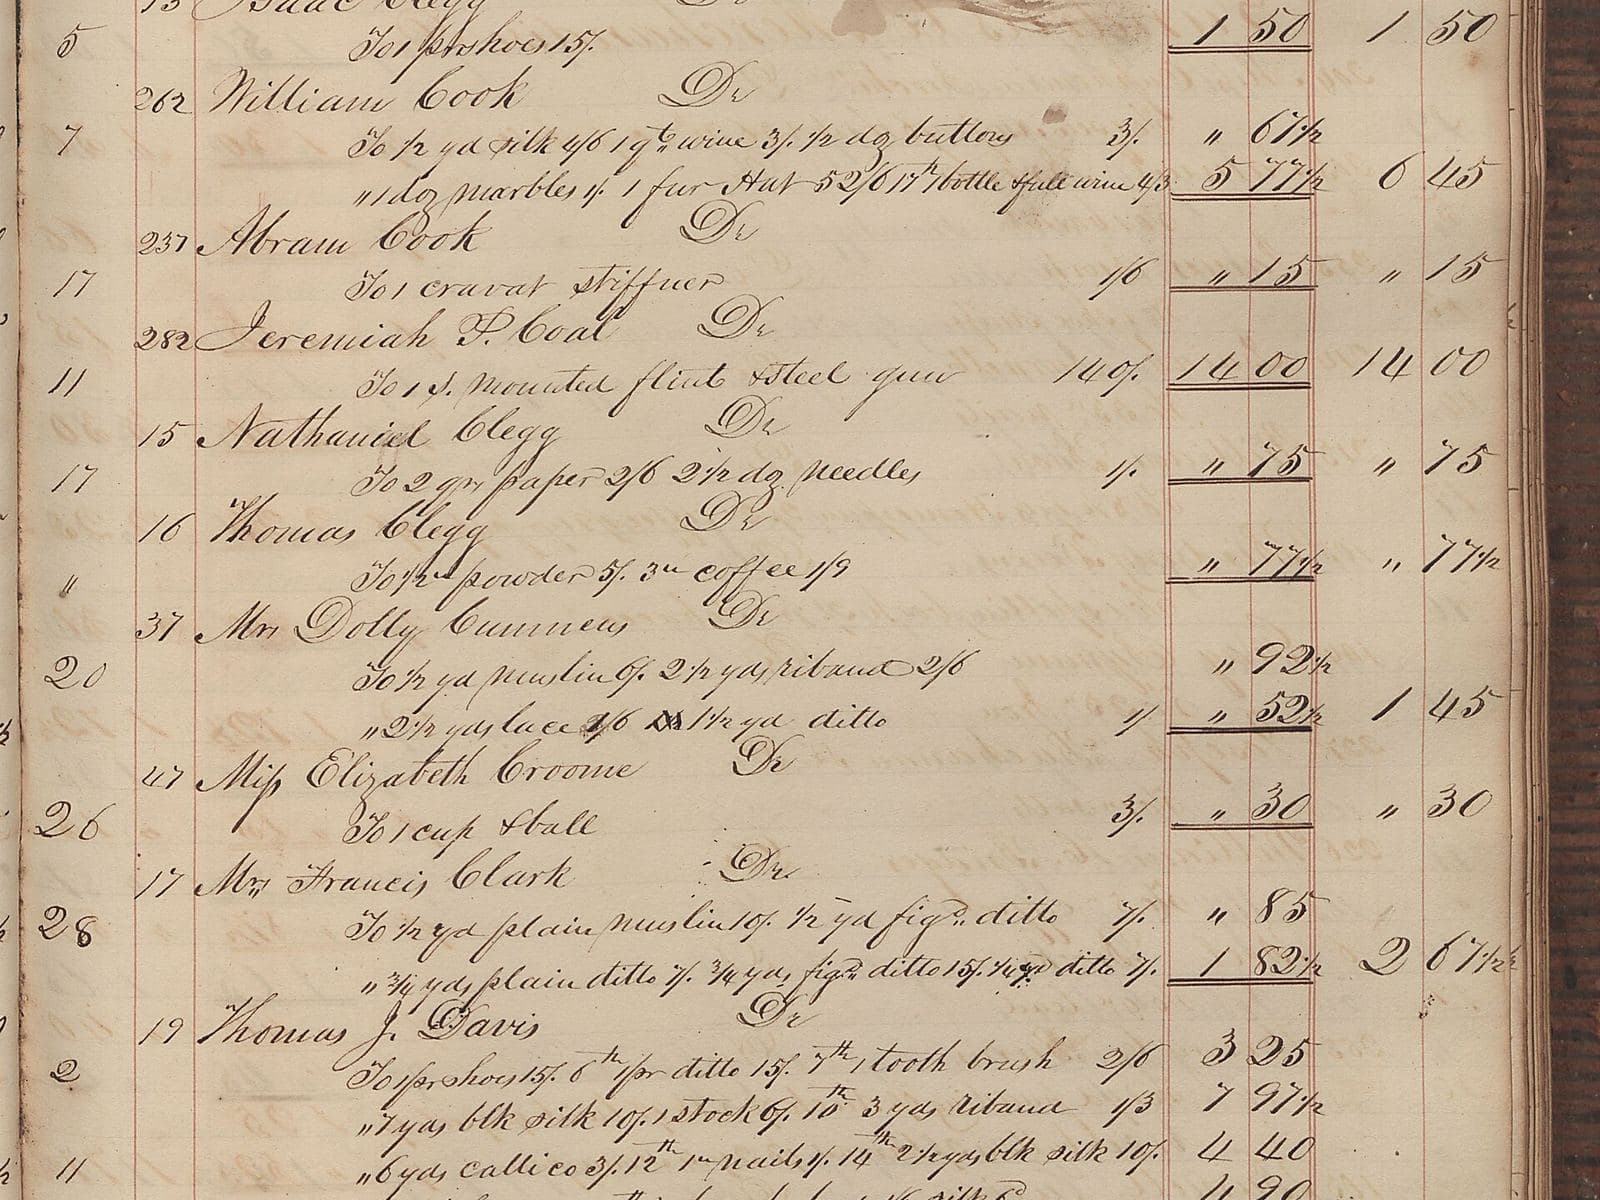 13 Isaac Clegg Dr
5 To 1 pr shoes 15/. 1 50 1 50
262 William Cook Dr
7 To 1/2 yd silk 4/6 1 qt wine 3/. 1/2 dz buttons 3/. " 67 1/2
" 1 dz marbles 1/. 1 fur Hat 52/6 17th 1 bottle & full wine 4/3 5 77 1/2 6 45
237 Abram Cook Dr
17 To 1 cravat stiffner 1/6 " 15 " 15
282 Jeremiah P. Coal Dr
11 To 1 S. mounted flint & steel gun 140/. 14 00 14 00
15 Nathaniel Clegg Dr
17 To 2 qrs paper 2/6 2 1/2 dz needles 1/. " 75 " 75
16 Thomas Clegg Dr
" To 1/2 " powder 5/. 3 " coffee 1/9 " 77 1/2 " 77 1/2
37 Mrs Dolly Cummens Dr
20 To 1/2 yd muslin 6/. 2 1/2 yds riband 2/6 " 92 1/2
" 2 1/2 yds lace 1/6 1 1/2 yd ditto 1/ " 52 1/2 1 45
47 Miss Elizabeth Croome Dr
26 To 1 cup & ball 3/. " 30 " 30
17 Mrs Francis Clark Dr
28 To 1/2 yd plain muslin 10/. 1/2 yd figd ditto 7/. " 85
" 3/4 yds plain ditto 7/. 3/4 yds figd ditto 15/. 1/4 yd ditto 7/. 1 82 1/2 2 67 1/2
19 Thomas J. Davis Dr
2 To 1 pr shoes 15/. 6th 1 pr ditto 15/. 7th 1 tooth brush 2/6 3 25
" 7 yds blk silk 10/. 1 stock 6/. 10th 3 yds riband 1/3 7 97 1/2
11 " 6 yds callico 3/. 12th 1 " nails 1/. 14th 2 1/2 yds blk silk 10/. 4 40
4 90